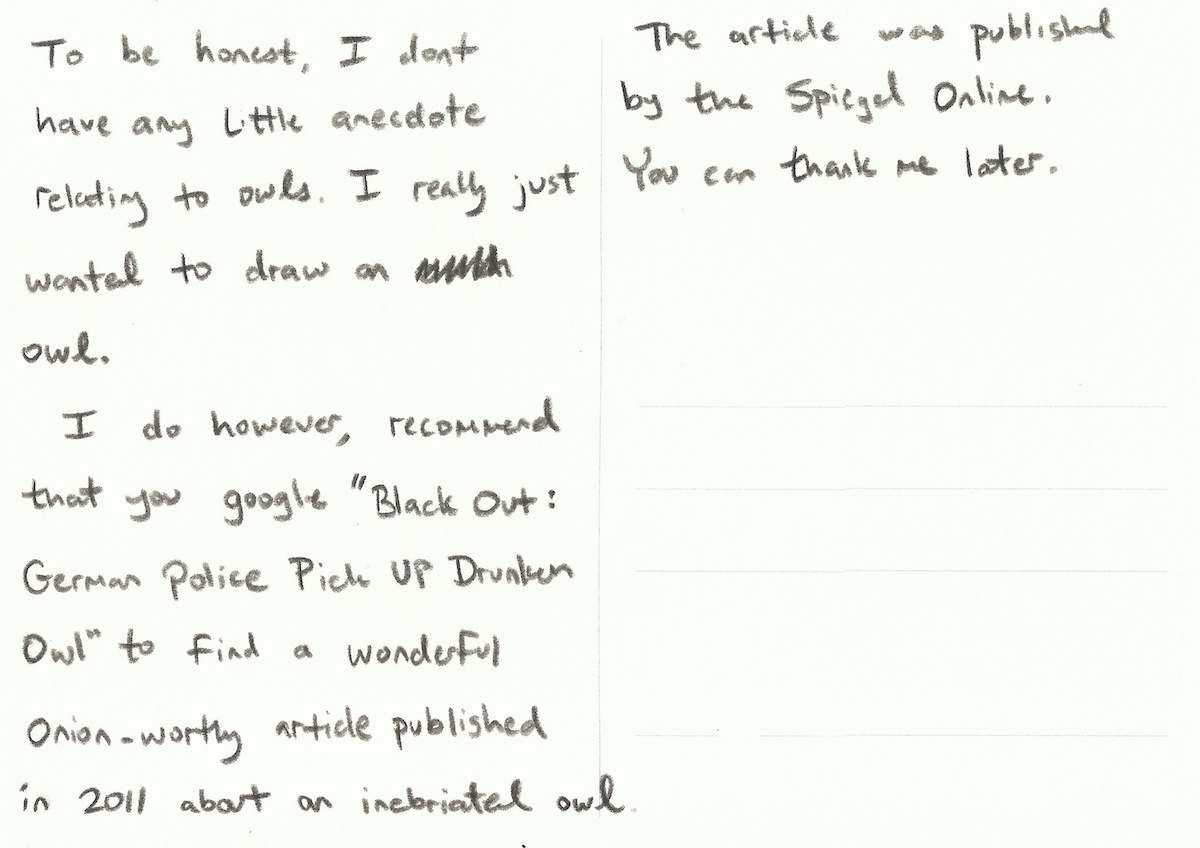 To be honest, I dont
have any Little anecdote
relating to owls. I really just
wanted to draw an
owl.
I do however, recommend
that you google "Black Out:
German Police Pick UP Drunken
Owl" to find a wonderful
Onion-worthy article published
in 2011 about an inebriated owl.
The article was published
by the Spiegel Online.
You can thank me later.